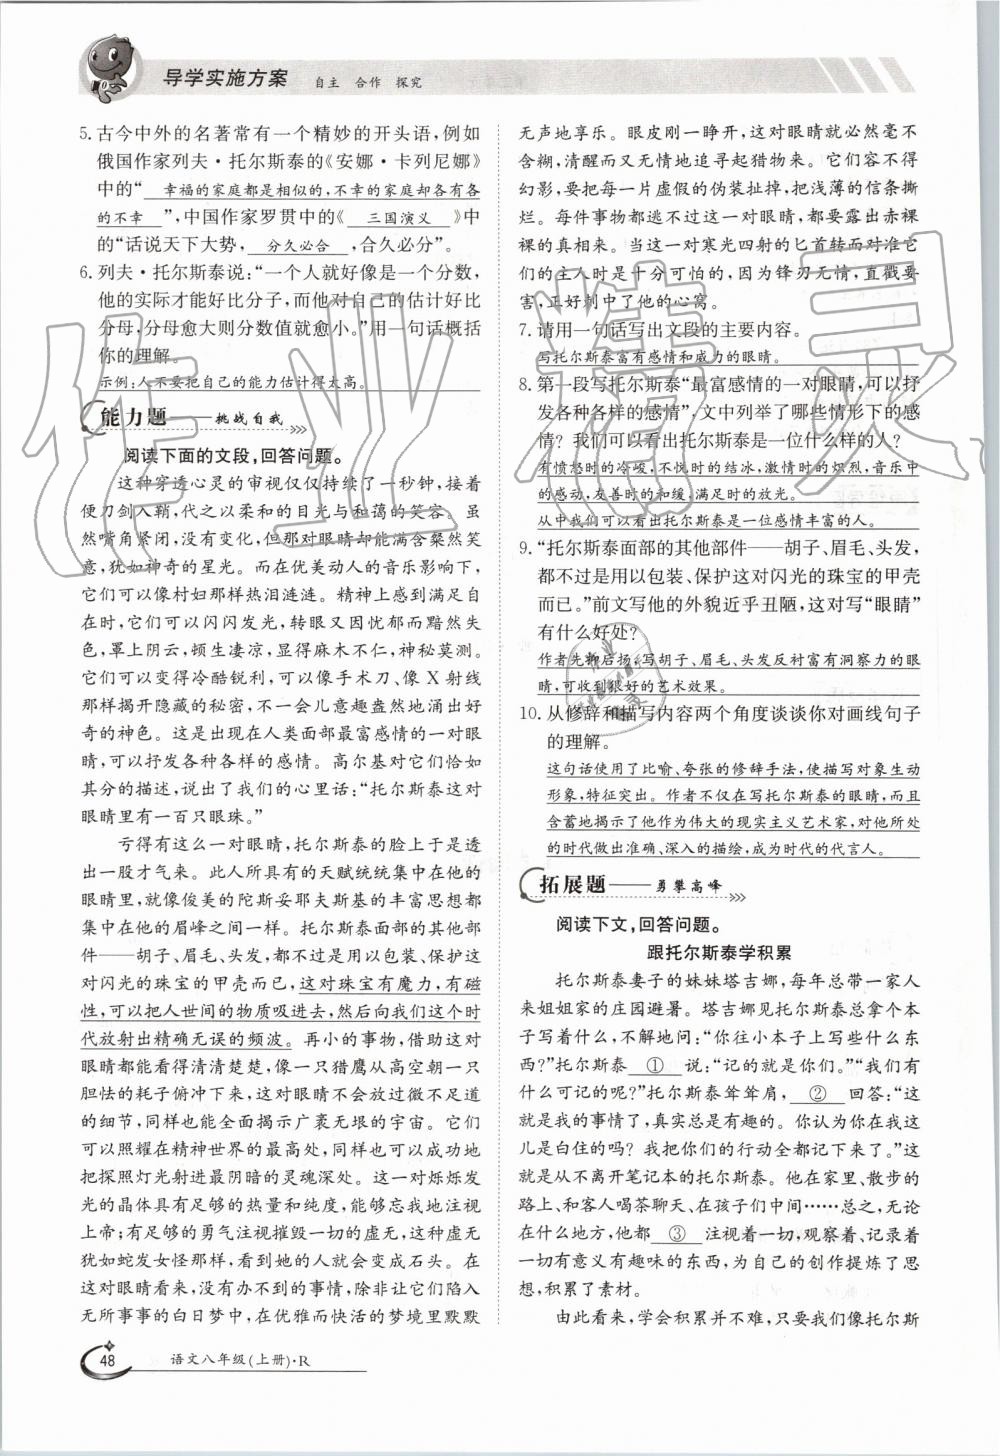 导学实施方案 自主 合作 探究
5.古今中外的名著常有一个精妙的开头语,例如
俄国作家列夫·托尔斯泰的《安娜·卡列尼娜》
中的“幸福的家庭都是相似的,不幸的家庭却各有各
的不幸”,中国作家罗贯中的《三国演义》中
的“话说天下大势,分久必合,合久必分”。
6.列夫·托尔斯泰说:“一个人就好像是一个分数,
他的实际才能好比分子,而他对自己的估计好比
分母,分母愈大则分数值就愈小。”用一句话概括
你的理解。
示例:人不要把自己的能力估计得太高。
能力题——挑战自我
阅读下面的文段,回答问题。
这种穿透心灵的审视仅仅持续了一秒钟,接着
便刀剑入鞘,代之以柔和的目光与和蔼的笑容。虽
然嘴角紧闭,没有变化,但那对眼睛却能满含粲然笑
意,犹如神奇的星光。而在优美动人的音乐影响下,
它们可以像村妇那样热泪涟涟。精神上感到满足自
在时,它们可以闪闪发光,转眼又因忧郁而黯然失
色,罩上阴云,顿生凄凉,显得麻木不仁,神秘莫测。
它们可以变得冷酷锐利,可以像手术刀、像X射线
那样揭开隐藏的秘密,不一会儿意趣盎然地涌出好
奇的神色。这是出现在人类面部最富感情的一对眼
睛,可以抒发各种各样的感情。高尔基对它们恰如
其分的描述,说出了我们的心里话:“托尔斯泰这对
眼睛里有一百只眼珠。”
亏得有这么一对眼睛,托尔斯泰的脸上于是透
出一股才气来。此人所具有的天赋统统集中在他的
眼睛里,就像俊美的陀斯妥耶夫斯基的丰富思想都
集中在他的眉峰之间一样。托尔斯泰面部的其他部
件——胡子、眉毛、头发,都不过是用以包装、保护这
对闪光的珠宝的甲壳而已,这对珠宝有魔力,有磁
性,可以把人世间的物质吸进去,然后向我们这个时
代放射出精确无误的频波。再小的事物,借助这对
眼睛都能看得清清楚楚,像一只猎鹰从高空朝一只
胆怯的耗子俯冲下来,这对眼睛不会放过微不足道
的细节,同样也能全面揭示广袤无垠的宇宙。它们
可以照耀在精神世界的最高处,同样也可以成功地
把探照灯光射进最阴暗的灵魂深处。这一对烁烁发
光的晶体具有足够的热量和纯度,能够忘我地注视
上帝;有足够的勇气注视摧毁一切的虚无,这种虚无
犹如蛇发女怪那样,看到她的人就会变成石头。在
这对眼睛看来,没有办不到的事情,除非让它们陷入
无所事事的白日梦中,在优雅而快活的梦境里默默
无声地享乐。眼皮刚一睁开,这对眼睛就必然毫不
含糊,清醒而又无情地追寻起猎物来。它们容不得
幻影,要把每一片虚假的伪装扯掉,把浅薄的信条撕
烂。每件事物都逃不过这一对眼睛,都要露出赤裸
裸的真相来。当这一对寒光四射的匕首转而对准它
们的主人时是十分可怕的,因为锋刃无情,直戳要
害,正好刺中了他的心窝。
7.请用一句话写出文段的主要内容。
写托尔斯泰富有感情和威力的眼睛。
8.第一段写托尔斯泰“最富感情的一对眼睛,可以抒
发各种各样的感情”,文中列举了哪些情形下的感
情?我们可以看出托尔斯泰是一位什么样的人?
有愤怒时的冷峻,不悦时的结冰,激情时的炽烈,音乐中
的感动,友善时的和缓,满足时的放光。
从中我们可以看出托尔斯泰是一位感情丰富的人。
9.“托尔斯泰面部的其他部件——胡子、眉毛、头发,
都不过是用以包装、保护这对闪光的珠宝的甲壳
而已。”前文写他的外貌近乎丑陋,这对写“眼睛”
有什么好处?
作者先抑后扬,写胡子、眉毛、头发反衬富有洞察力的眼
睛,可收到很好的艺术效果。
10.从修辞和描写内容两个角度谈谈你对画线句子
的理解。
这句话使用了比喻、夸张的修辞手法,使描写对象生动
形象,特征突出。作者不仅在写托尔斯泰的眼睛,而且
含蓄地揭示了他作为伟大的现实主义艺术家,对他所处
的时代做出准确、深入的描绘,成为时代的代言人。
拓展题——勇攀高峰
阅读下文,回答问题。
跟托尔斯泰学积累
托尔斯泰妻子的妹妹塔吉娜,每年总带一家人
来姐姐家的庄园避暑。塔吉娜见托尔斯泰总拿个本
子写着什么,不解地问:“你往小本子上写些什么东
西?”托尔斯泰 ① 说:“记的就是你们。”“我们有
什么可记的呢?”托尔斯泰耸耸肩, ② 回答:“有
趣,我的事情了,真实总是有趣的。你认为你在我这
儿是白住的吗?我把你们的行动全都记下来了。”这
就是从不离开笔记本的托尔斯泰。他在家里、散步的
路上、和客人喝茶聊天、在孩子们中间……总之,无论
在什么地方,他都 ③ 注视着一切,观察着、记录着
一切有意义有趣味的东西,为自己的创作提炼了思
想,积累了素材。
由此看来,学会积累并不难,只要我们像托尔斯
48 语文八年级(上册)·R
作业精灵